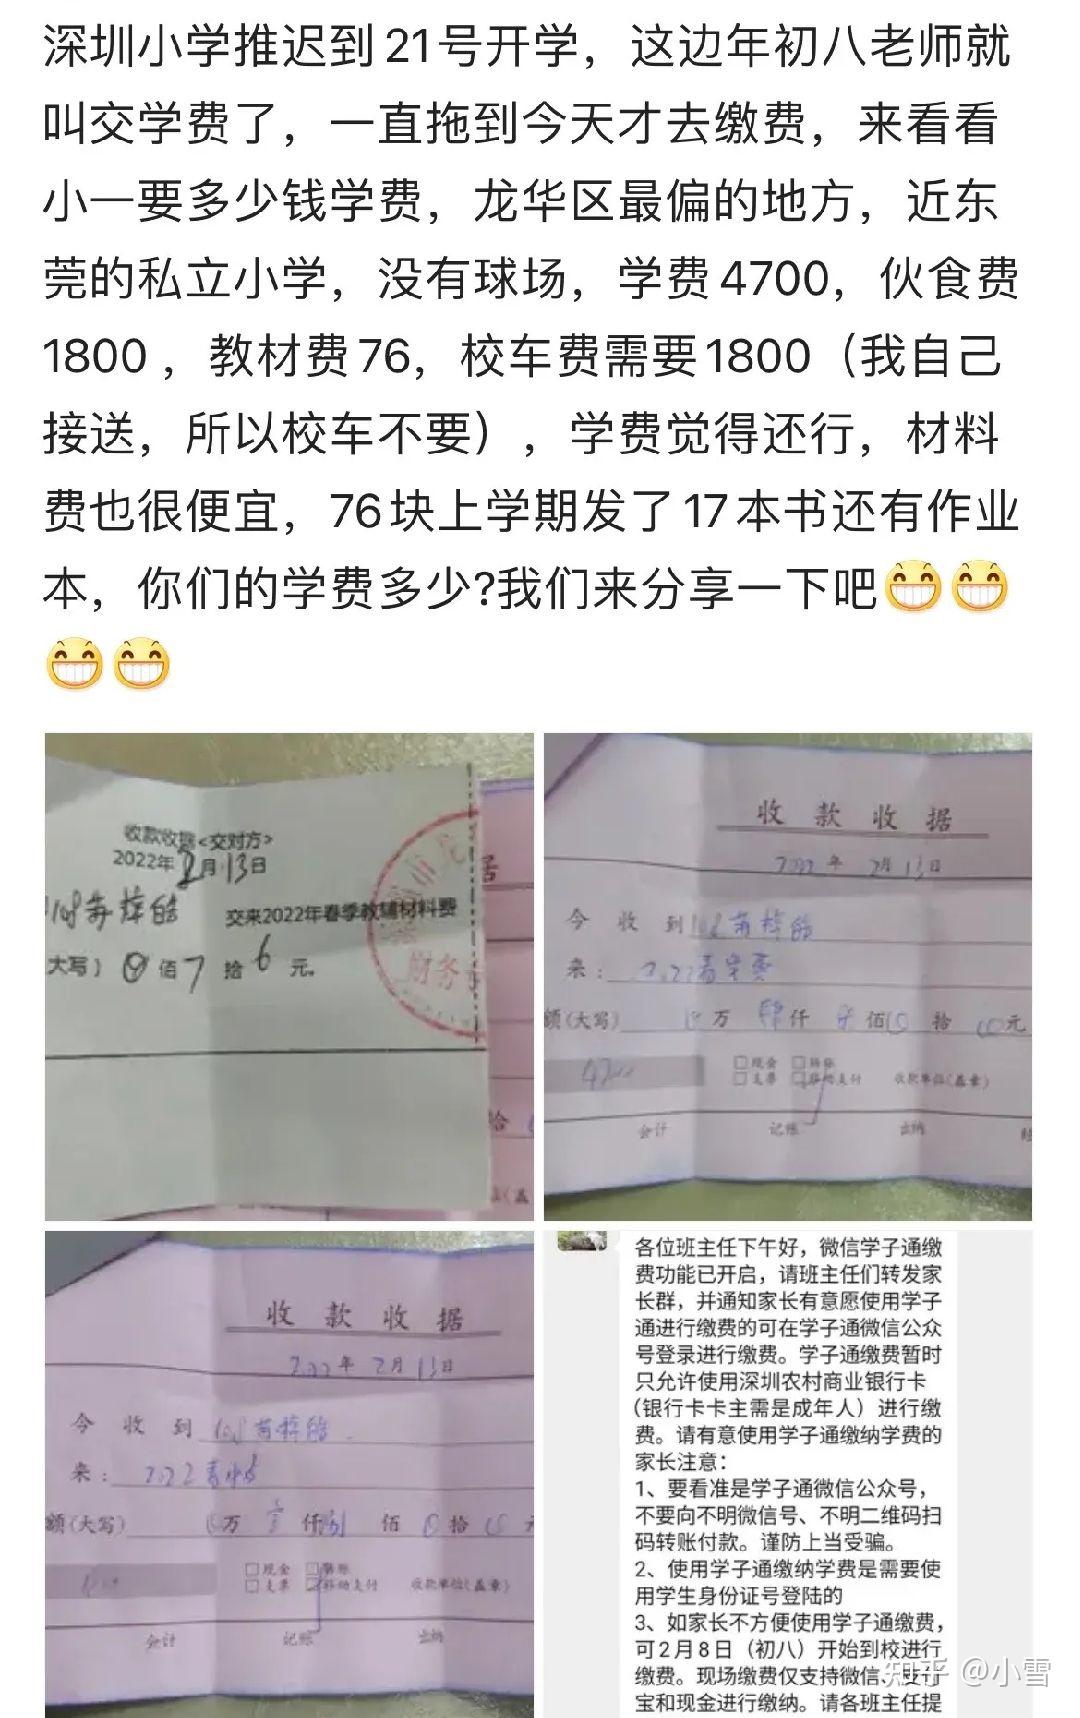 深圳小学推迟到21号开学，这边年初八老师就
叫交学费了，一直拖到今天才去缴费，来看看
小一要多少钱学费，龙华区最偏的地方，近东
莞的私立小学，没有球场，学费4700，伙食费
1800，教材费76，校车费需要1800（我自己
接送，所以校车不要），学费觉得还行，材料
费也很便宜，76块上学期发了17本书还有作业
本，你们的学费多少?我们来分享一下吧😁😁
😁😁
收款收据<交对方>
2022年2月13日
交来2022年春季教辅材料费
大写）0佰7拾6元。
财务
收款收据
2022年2月13日
今收到108
来：
额(大写) 0万肆仟 佰0拾0元
4700
□现金 □转账
□支票 □移动支付 收款单位(盖章)
会计 记账 出纳
收款收据
2022年2月13日
今收到108
来：2022春
额(大写) 0万 仟 佰0拾0元
□现金 □转账
□支票 □移动支付 收款单位(盖章)
会计 记账 出纳
各位班主任下午好，微信学子通缴
费功能已开启，请班主任们转发家
长群，并通知家长有意愿使用学子
通进行缴费的可在学子通微信公众
号登录进行缴费。学子通缴费暂时
只允许使用深圳农村商业银行卡
(银行卡卡主需是成年人）进行缴
费。请有意使用学子通缴纳学费的
家长注意：
1、要看准是学子通微信公众号，
不要向不明微信号、不明二维码扫
码转账付款。谨防上当受骗。
2、使用学子通缴纳学费是需要使
用学生身份证号登陆的
3、如家长不方便使用学子通缴费，
可2月8日（初八）开始到校进行
缴费。现场缴费仅支持微信、支付
宝和现金进行缴纳。请各班主任提
知乎 @小雪